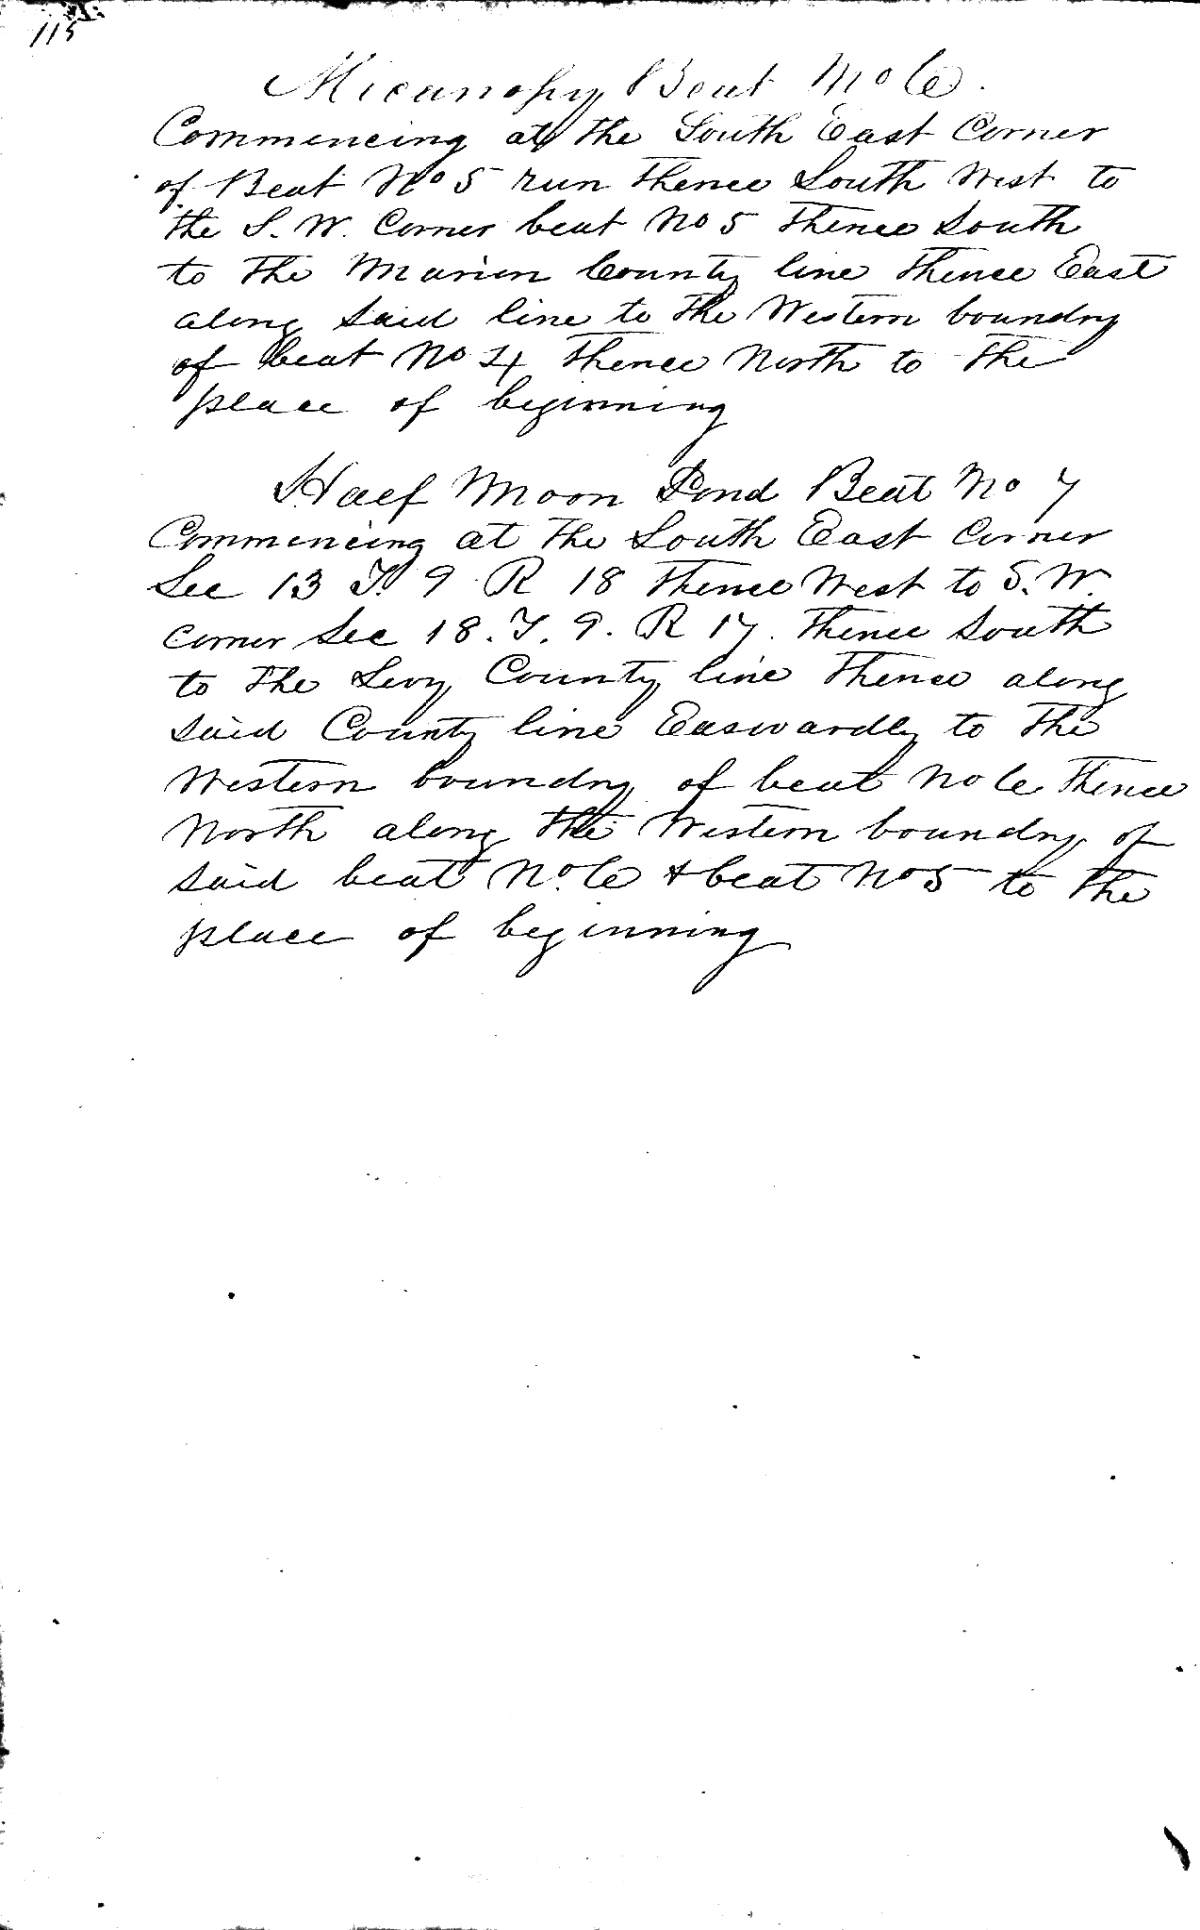 115
Micanopy Beat No 6.
Commencing at the South East Corner
of Beat No 5 run thence South West to
the S. W. Corner beat No 5 thence South
to the Marion County line thence East
along said line to the Western boundry
of beat No 4 thence North to the
place of beginning
Half Moon Pond Beat No 7
Commencing at the South East Corner
Sec 13 T. 9 R 18 thence West to S. W.
corner Sec 18. T. 9. R 17. thence South
to the Levy County line thence along
said County line Easwardly to the
Western boundry of beat No 6 thence
North along the Western boundry of
said beat No. 6 & beat No 5 to the
place of beginning